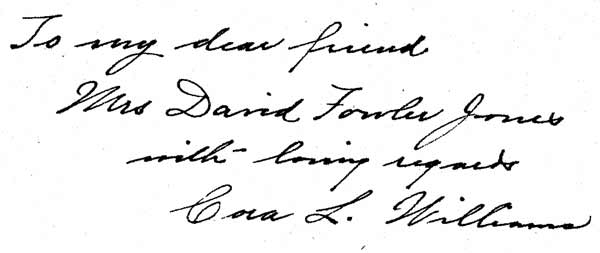 To my dear friend
Mrs David Fowler Jones
with loving regards
Cora L. Williams